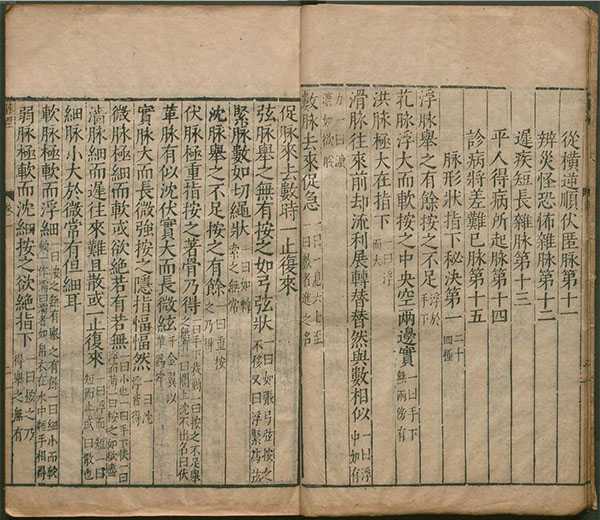 從橫逆順伏匿脉第十一
辨災怪恐怖雜脉第十二
遲疾短長雜脉第十三
平人得病所起脉第十四
診病將差難已脉第十五
脉形狀指下秘決第一 二十四種
浮脉舉之有餘按之不足 浮於手下
芤脉浮大而軟按之中央空兩邊實 一曰手下無兩傍有
洪脉極大在指下 一曰浮而大
滑脉往來前却流利展轉替替然與數相似 一曰浮中如有
力一曰漉漉如欲脫
數脉去來促急 一曰一息六七至一曰數者進之名
促脉來去數時一止復來
弦脉舉之無有按之如弓弦狀 一曰如張弓弦按之不移又曰浮緊為弦
緊脉數如切繩狀 一曰如轉索之無常
沈脉舉之不足按之有餘 一曰重按之乃得
伏脉極重指按之著骨乃得 一曰手下裁動一曰按之不足舉之無有一曰關上沈不出名曰伏
革脉有似沈伏實大而長微弦 千金翼以革為牢
實脉大而長微強按之隱指愊愊然 一曰沈浮皆得
微脉極細而軟或欲絕若有若無 一曰小也一曰手下快一曰浮而薄一曰按之如欲盡
濇脉細而遲往來難且散或一止復來 一曰浮而短一曰短而止或曰散也
細脉小大於微常有但細耳
軟脉極軟而浮細 一曰按之無有舉之有餘一曰細小而軟軟一作濡曰濡者如帛衣在水中輕手相得
弱脉極軟而沈細按之欲絕指下 一曰按之乃得舉之無有